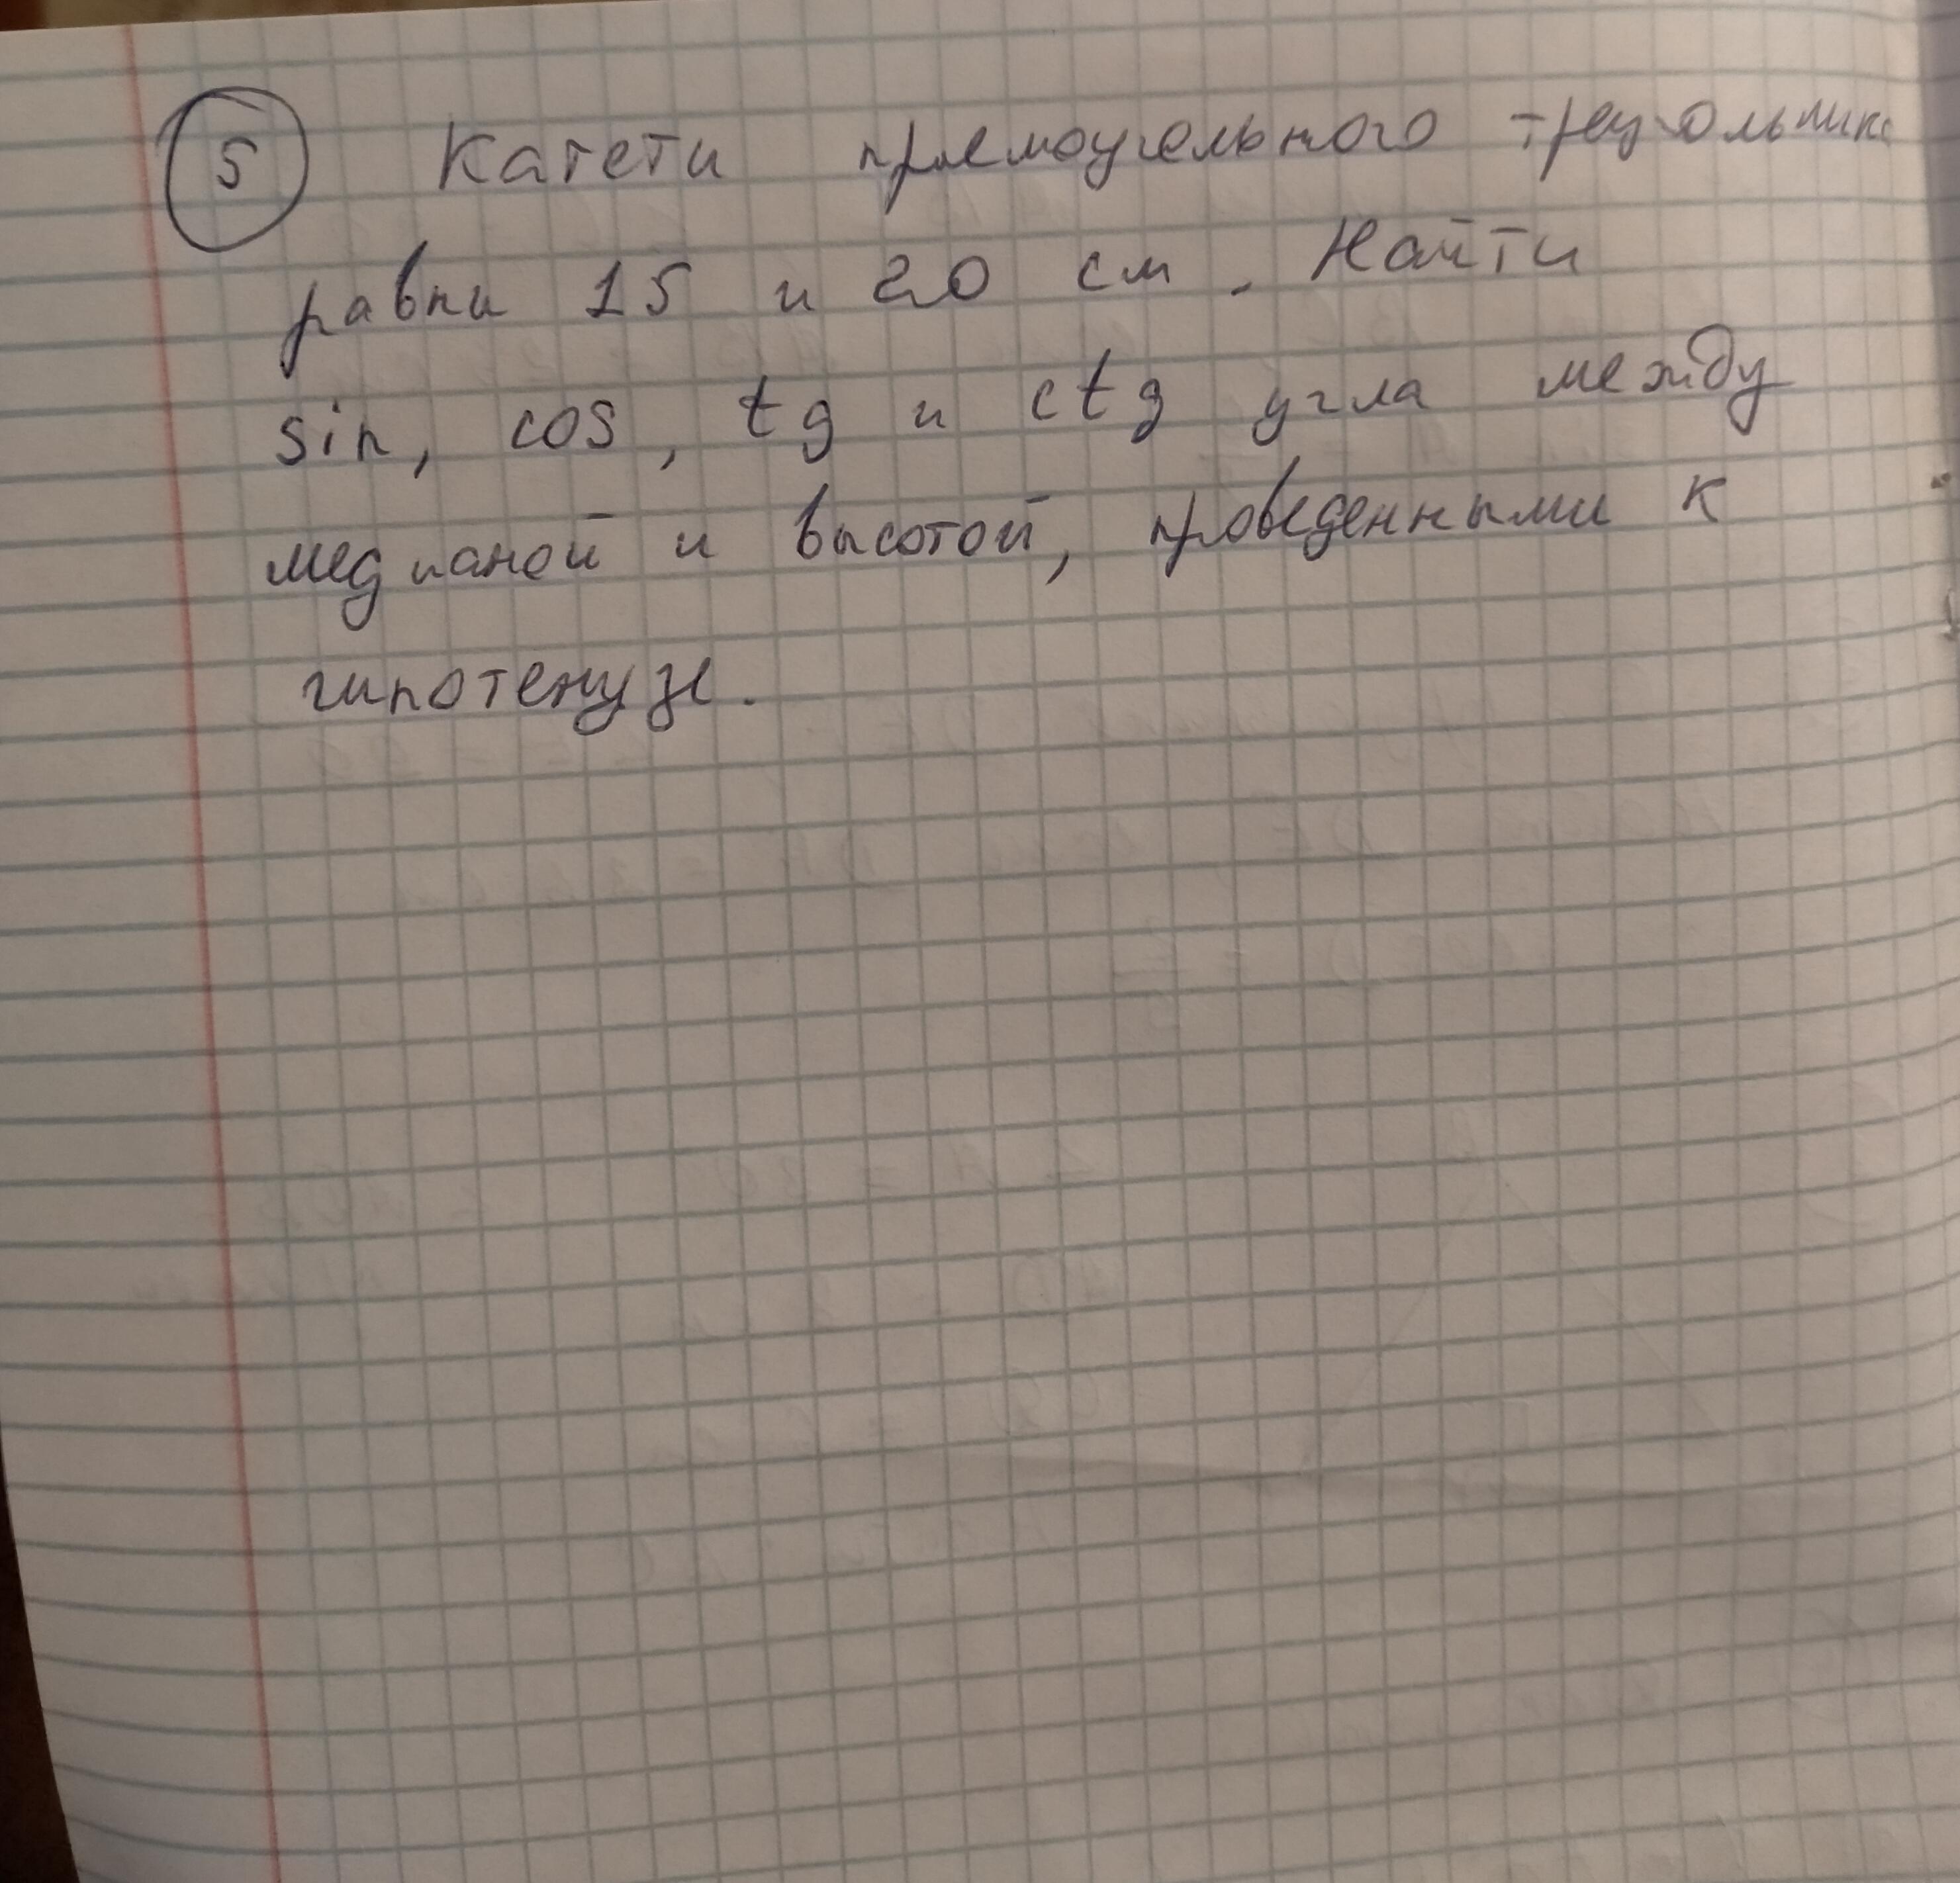 5 Катети прямоугольного треугольника
равни 15 и 20 см. Найти
sin, cos, tg и ctg угла между
медианой и высотой, проведенными к
гипотенузе.